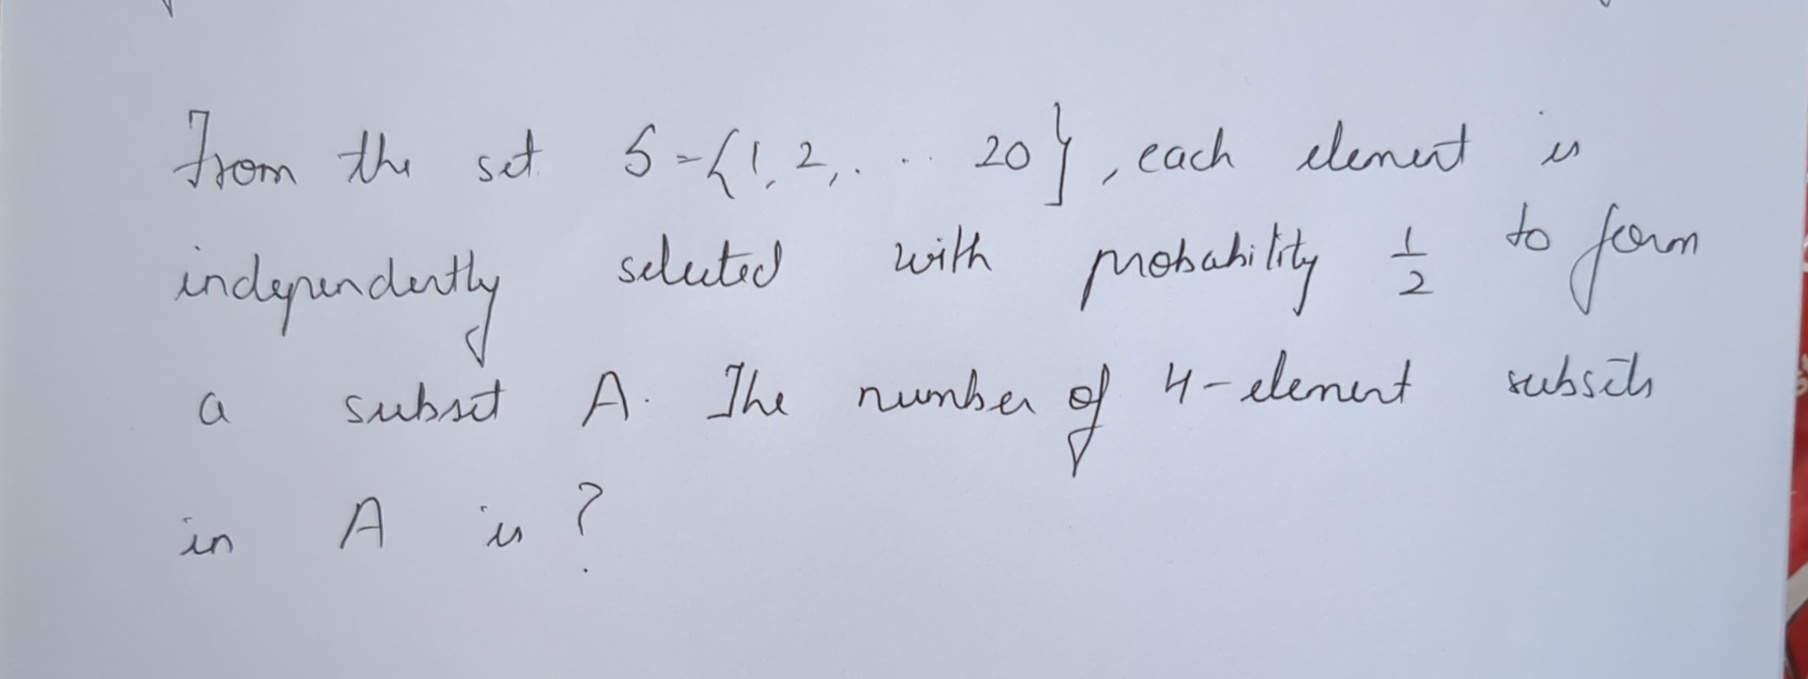 From the set S={1,2,... 20}, each element is
independently selected with probability 1/2 to form
a subset A. The number of 4-element subsets
in A is ?